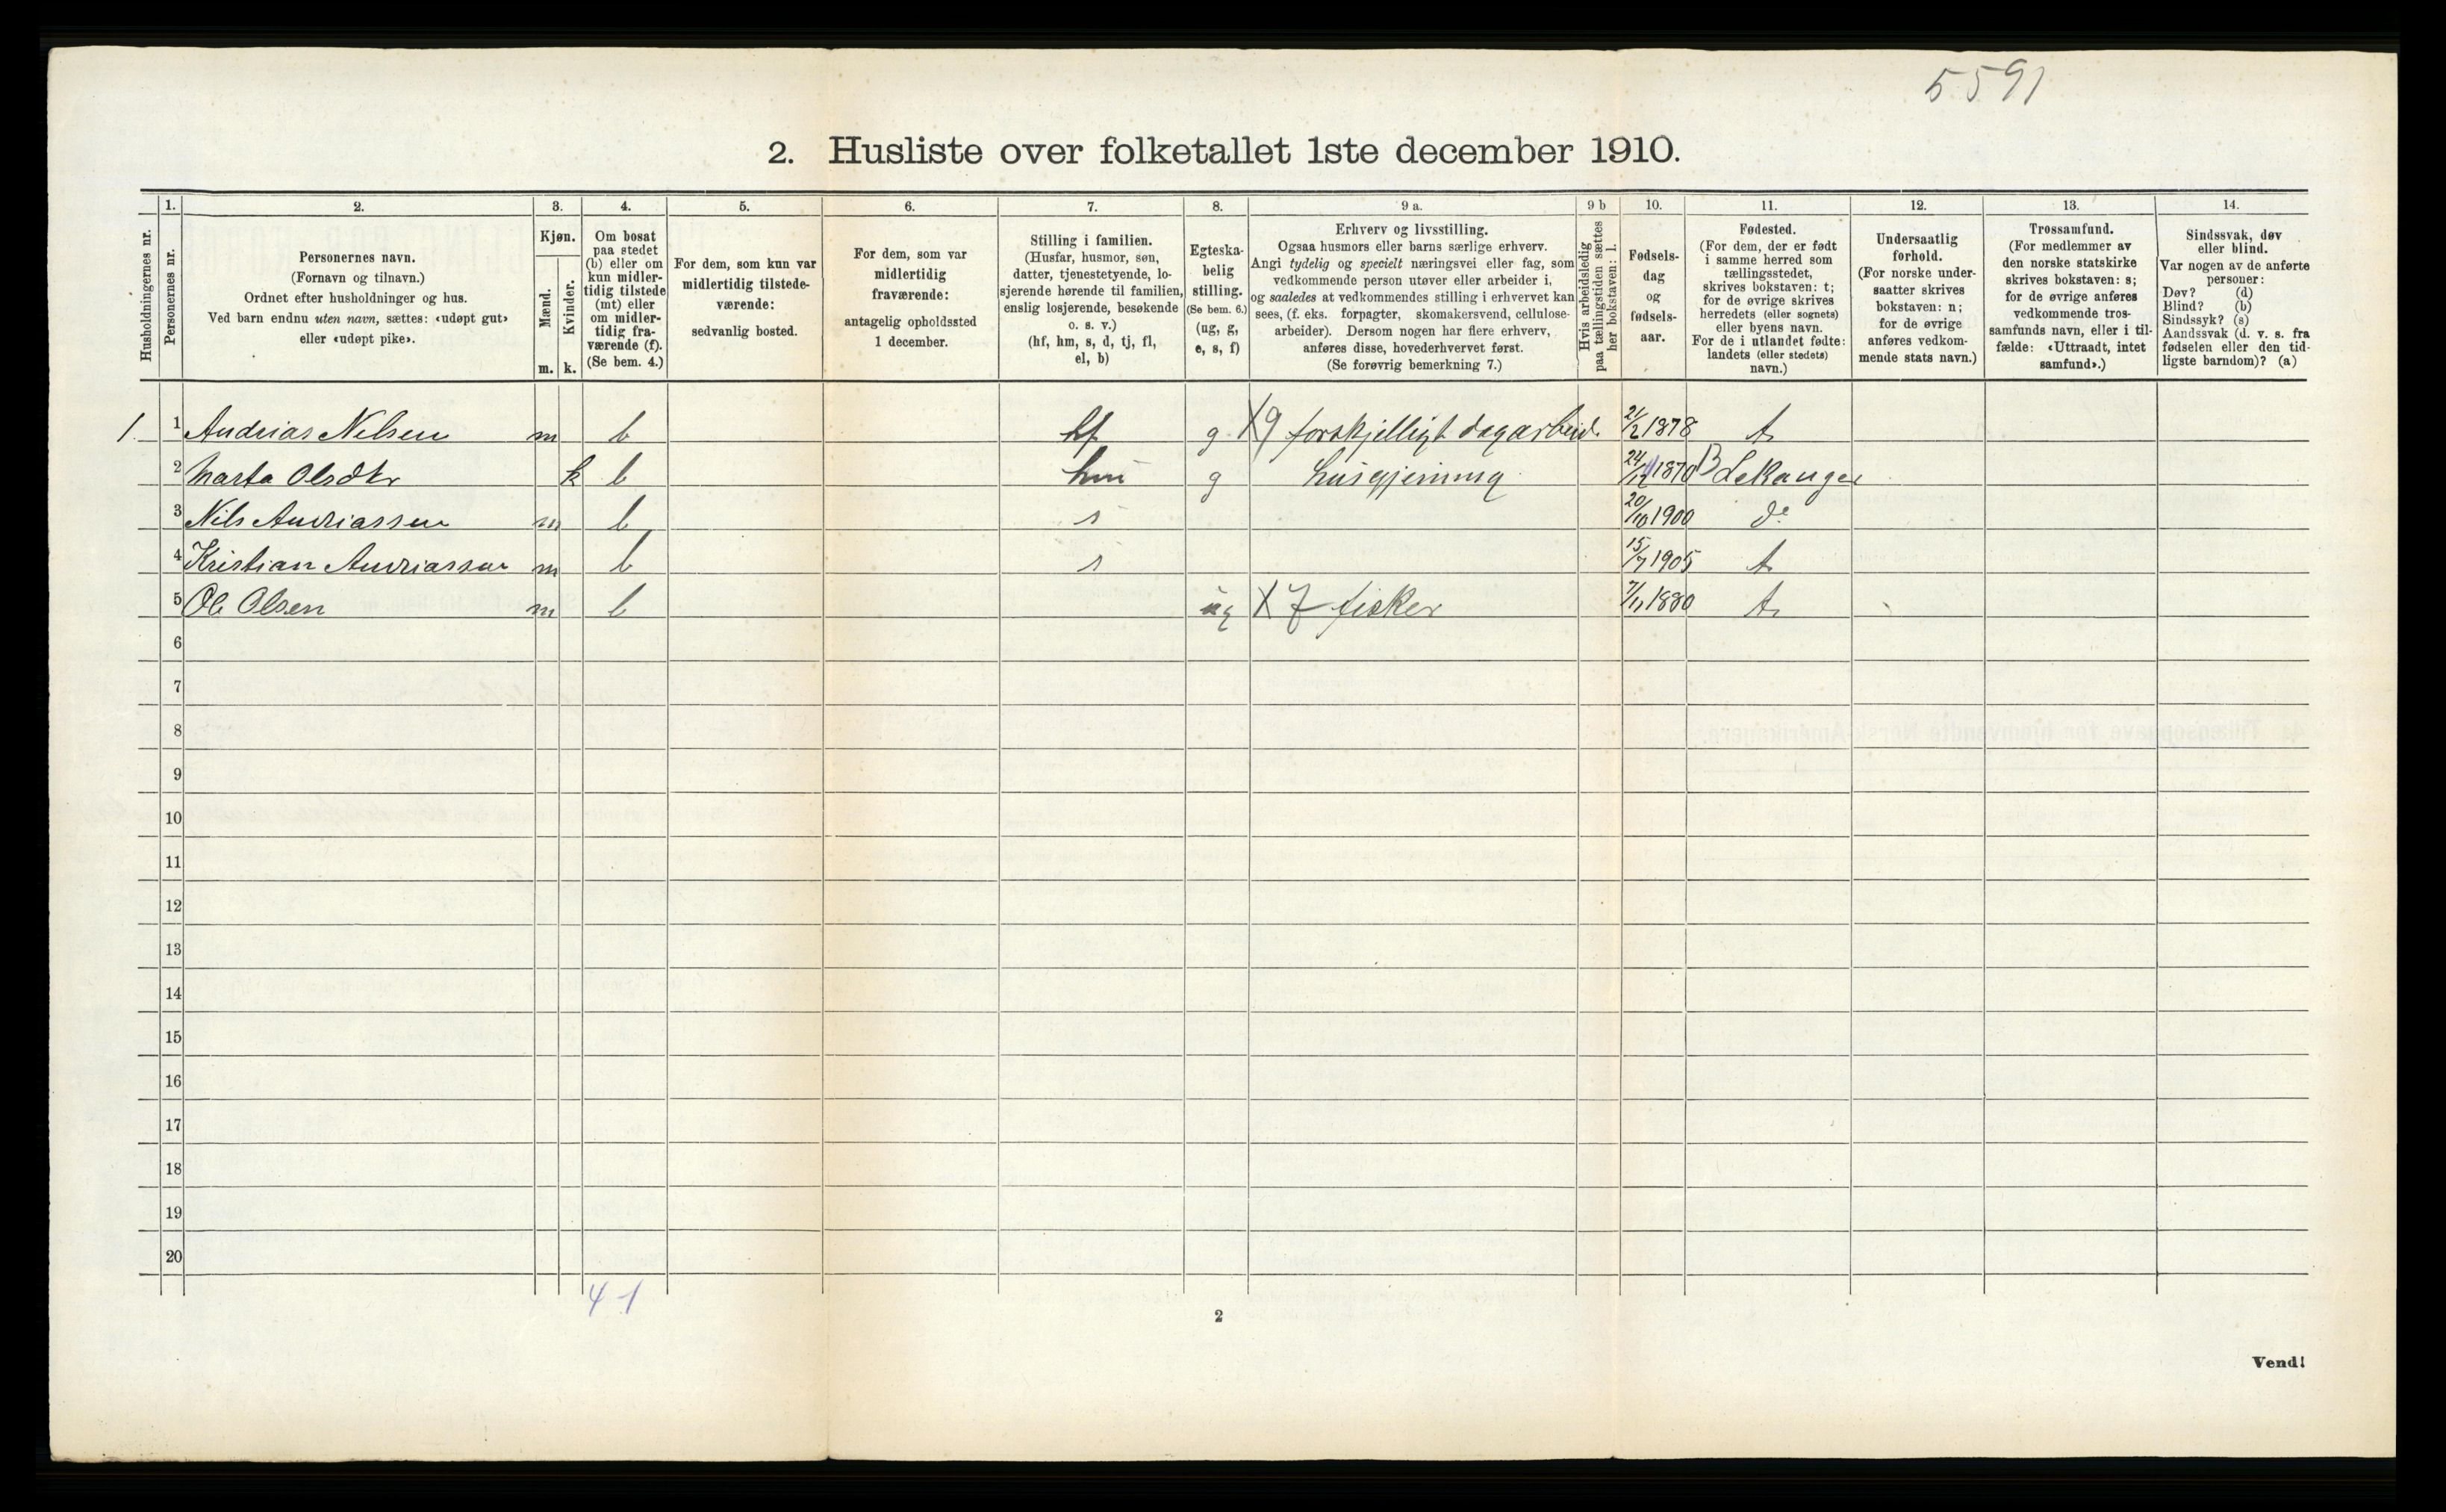 5591
2. Husliste over folketallet 1ste december 1910.
Husholdningernes nr.
1.
Personernes nr.
2.
Personernes navn.
(Fornavn og tilnavn.)
Ordnet efter husholdninger og hus.
Ved barn endnu uten navn, sættes: «udøpt gut»
eller «udøpt pike».
3.
Kjøn.
Mænd.
Kvinder.
m. k.
4.
Om bosat
paa stedet
(b) eller om
kun midler-
tidig tilstede
(mt) eller
om midler-
tidig fra-
værende (f).
(Se bem. 4.)
5.
For dem, som kun var
midlertidig tilstede-
værende:
sedvanlig bosted.
6.
For dem, som var
midlertidig
fraværende:
antagelig opholdssted
1 december.
7.
Stilling i familien.
(Husfar, husmor, søn,
datter, tjenestetyende, lo-
sjerende hørende til familien,
enslig losjerende, besøkende
o. s. v.)
(hf, hm, s, d, tj, fl,
el, b)
8.
Egteska-
belig
stilling.
(Se bem. 6.)
(ug, g,
e, s, f)
9 a.
Erhverv og livsstilling.
Ogsaa husmors eller barns særlige erhverv.
Angi tydelig og specielt næringsvei eller fag, som
vedkommende person utøver eller arbeider i,
og saaledes at vedkommendes stilling i erhvervet kan
sees, (f. eks. forpagter, skomakersvend, cellulose-
arbeider). Dersom nogen har flere erhverv,
anføres disse, hovederhvervet først.
(Se forøvrig bemerkning 7.)
9 b
Hvis arbeidsledig
paa tællingstiden sættes
her bokstaven: l.
10.
Fødsels-
dag
og
fødsels-
aar.
11.
Fødested.
(For dem, der er født
i samme herred som
tællingsstedet,
skrives bokstaven: t;
for de øvrige skrives
herredets (eller sognets)
eller byens navn.
For de i utlandet fødte:
landets (eller stedets)
navn.)
12.
Undersaatlig
forhold.
(For norske under-
saatter skrives
bokstaven: n;
for de øvrige
anføres vedkom-
mende stats navn.)
13.
Trossamfund.
(For medlemmer av
den norske statskirke
skrives bokstaven: s;
for de øvrige anføres
vedkommende tros-
samfunds navn, eller i til-
fælde: «Uttraadt, intet
samfund».)
14.
Sindssvak, døv
eller blind.
Var nogen av de anførte
personer:
Døv? (d)
Blind? (b)
Sindssyk? (s)
Aandssvak (d. v. s. fra
fødselen eller den tid-
ligste barndom)? (a)
1. 1 Andrias Nilsen m b hf g X9 forskjelligt dagarbeid. 21/2 1878 t.
2 Marta Olsdtr k b hm g husgjerning 1870 B Lekanger
3 Nils Andriassen m b s 20/10 1900 do
4 Kristian Andriassen m b s 15/7 1905 t.
5 Ole Olsen m b ug X 7 fisker 7/11 1880 t.
6
7
8
9
10
11
12
13
14
15
16
17
18
19
20
4-1
2
Vend!